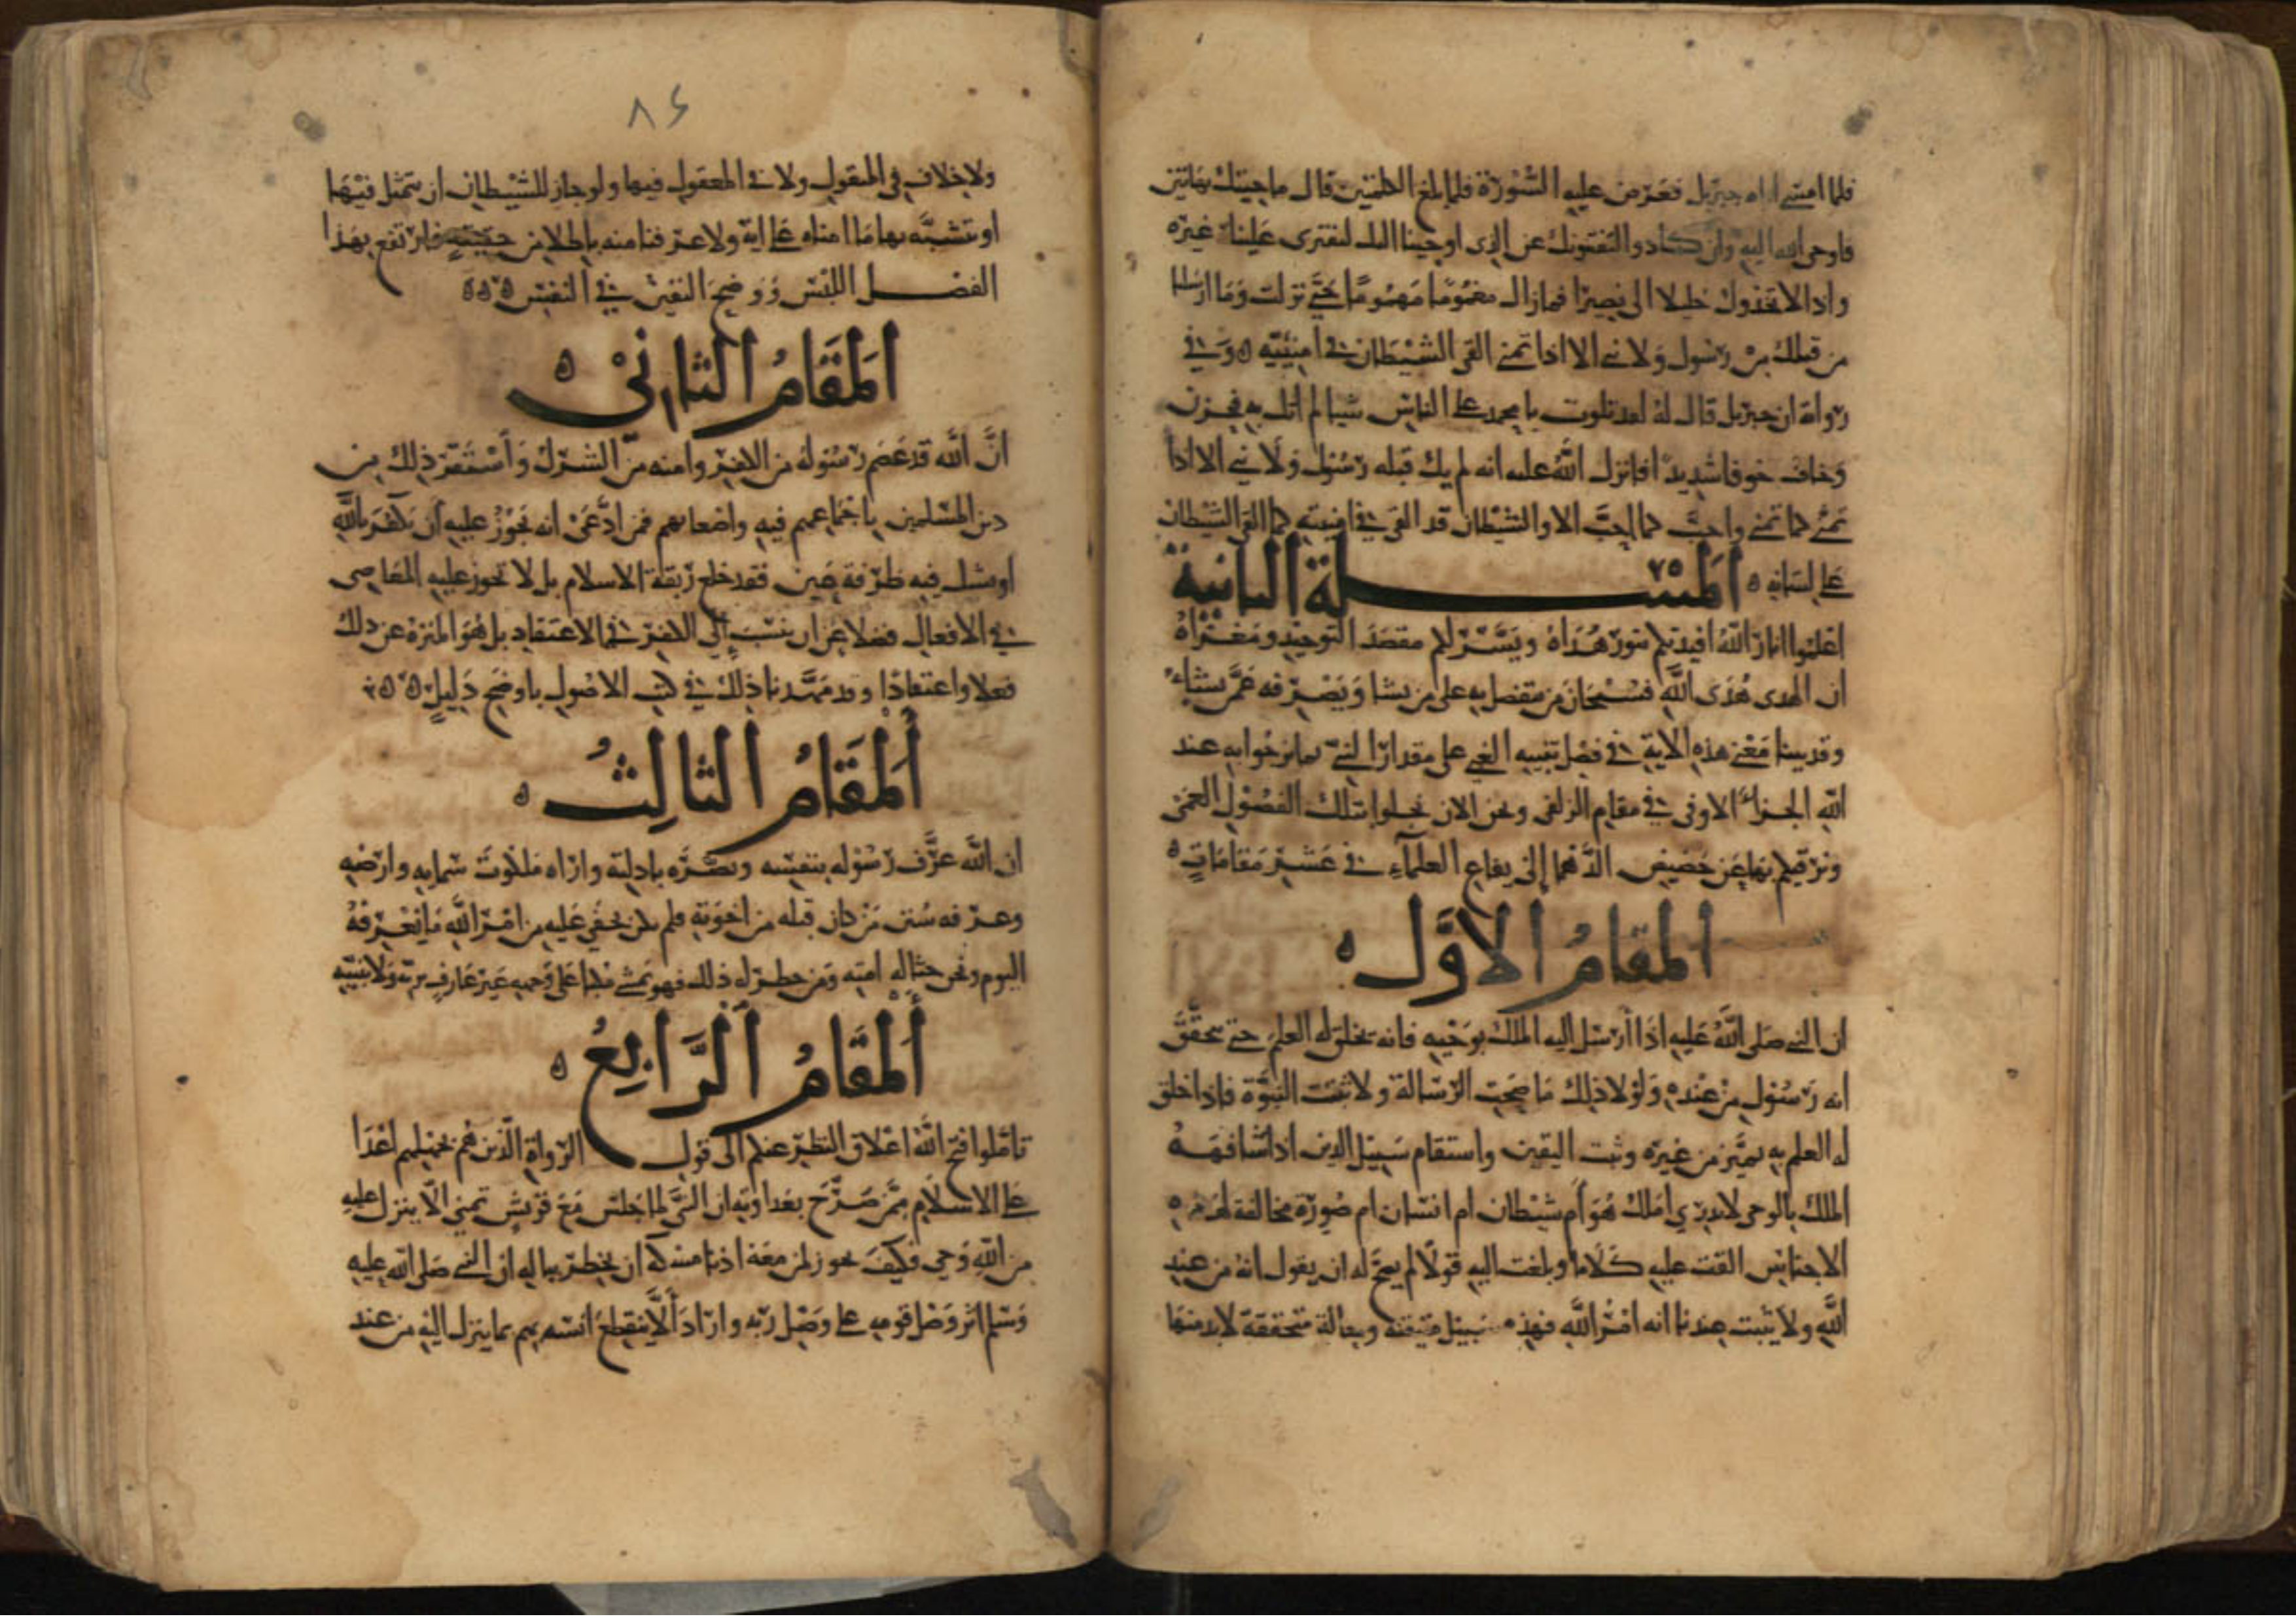 فلما امسى اتاه جبريل فعرض عليه السورة فلما بلغ الكلمتين قال ما جيتك بهاتين
فاوحى الله اليه وان كادوا ليفتنونك عن الذي اوحينا اليك لتفتري علينا غيره
واذا لاتخذوك خليلا الى نصيرا فمازال مغموما مهموما حتى نزلت وما ارسلنا
من قبلك من رسول ولا نبي الا اذا تمنى القى الشيطان في امنيته ه وفي
رواية ان جبريل قال له لقد تلوت يا محمد على الناس شيا لم اتك به فحزن
وخاف خوفا شديدا فانزل الله عليه انه لم يك قبله رسول ولا نبي الا اذا
تمنى كما تمنى واحب كما احب الا والشيطان قد القى في امنيته كما القى الشيطان
على لسانه ه المسلة الثانية
اعلموا انار الله افيدتكم بنور هداه ويسر لكم مقصد التوحيد ومغزاه
ان الهدى هدى الله فسبحان من يتفضل به على من يشا ويصرفه عمن يشاء
وقد بينا معنى هذه الاية في فصل تنبيه الغبي على مقدار النبي بما نرجوا به عند
الله الجزاء الاوفى في مقام الزلفى ونحن الان نجلوا بتلك الفصول الغمى
ونرقيكم بها عن حضيض الدهما الى يفاع العلماء في عشر مقامات ه
المقام الاول ه
ان النبي صلى الله عليه اذا ارسل اليه الملك بوحيه فانه يخلق له العلم حتى يتحقق
انه رسول من عنده ولولا ذلك ما صحت الرسالة ولا ثبتت النبوة فاذا خلق
له العلم به تميز من غيره وثبت اليقين واستقام سبيل الدين اذ لو كان اذا شافهه
الملك بالوحي لا يدري املك هو ام شيطان ام انسان ام صورة مخالفة لهذه
الاجناس القت عليه كلاما وبلغت اليه قولا لم يصح له ان يقول انه من عند
الله ولا يثبت عندنا انه امر الله فهذه سبيل متيقنة وحالة متحققة لا بد منها
٨٤
ولا خلاف في المنقول ولا في المعقول فيها ولو جاز للشيطان ان يتمثل فيها
او يتشبه بها ما امناه على اية ولا عرفنا منه باطلا من حقيقة فارتفع بهذا
الفصل اللبس ووضح اليقين في النفس ه ه ه
المقام الثاني ه
ان الله قد عصم رسوله من الكفر وامنه من الشرك واستقر ذلك من
دين المسلمين باجماعهم فيه واطباقهم فمن ادعى انه يجوز عليه ان يكفر بالله
او يشك فيه طرفة عين فقد خلع ربقة الاسلام بل لا تجوز عليه المعاصي
في الافعال فضلا عن ان ينسب الى الكفر في الاعتقاد بل هو المنزه عن ذلك
فعلا واعتقادا وقد مهدنا ذلك في كتب الاصول باوضح دليل ه ه ه
المقام الثالث ه
ان الله عرف رسوله بنفسه وبصره بادلته واراه ملكوت سمايه وارضه
وعرفه سنن من كان قبله من اخوته فلم يكن يخفى عليه من امر الله ما نعرفه
اليوم ونحن حثالة امته ومن خطر له ذلك فهو يمشي مكبا على وجهه غير عارف بربه ولا بنبيه
المقام الرابع ه
تاملوا فتح الله اغلاق النظر عنكم الى قول الرواة الذين هم بجهلهم اعدا
على الاسلام ممن صرح بعداوته ان النبي لما جلس مع قريش تمنى الا ينزل عليه
من الله وحي فكيف يجوز لمن معه ادنا مسكة ان يخطر بباله ان النبي صلى الله عليه
وسلم اثر وصل قومه على وصل ربه واراد الا ينقطع انسه بهم بما ينزل اليه من عند